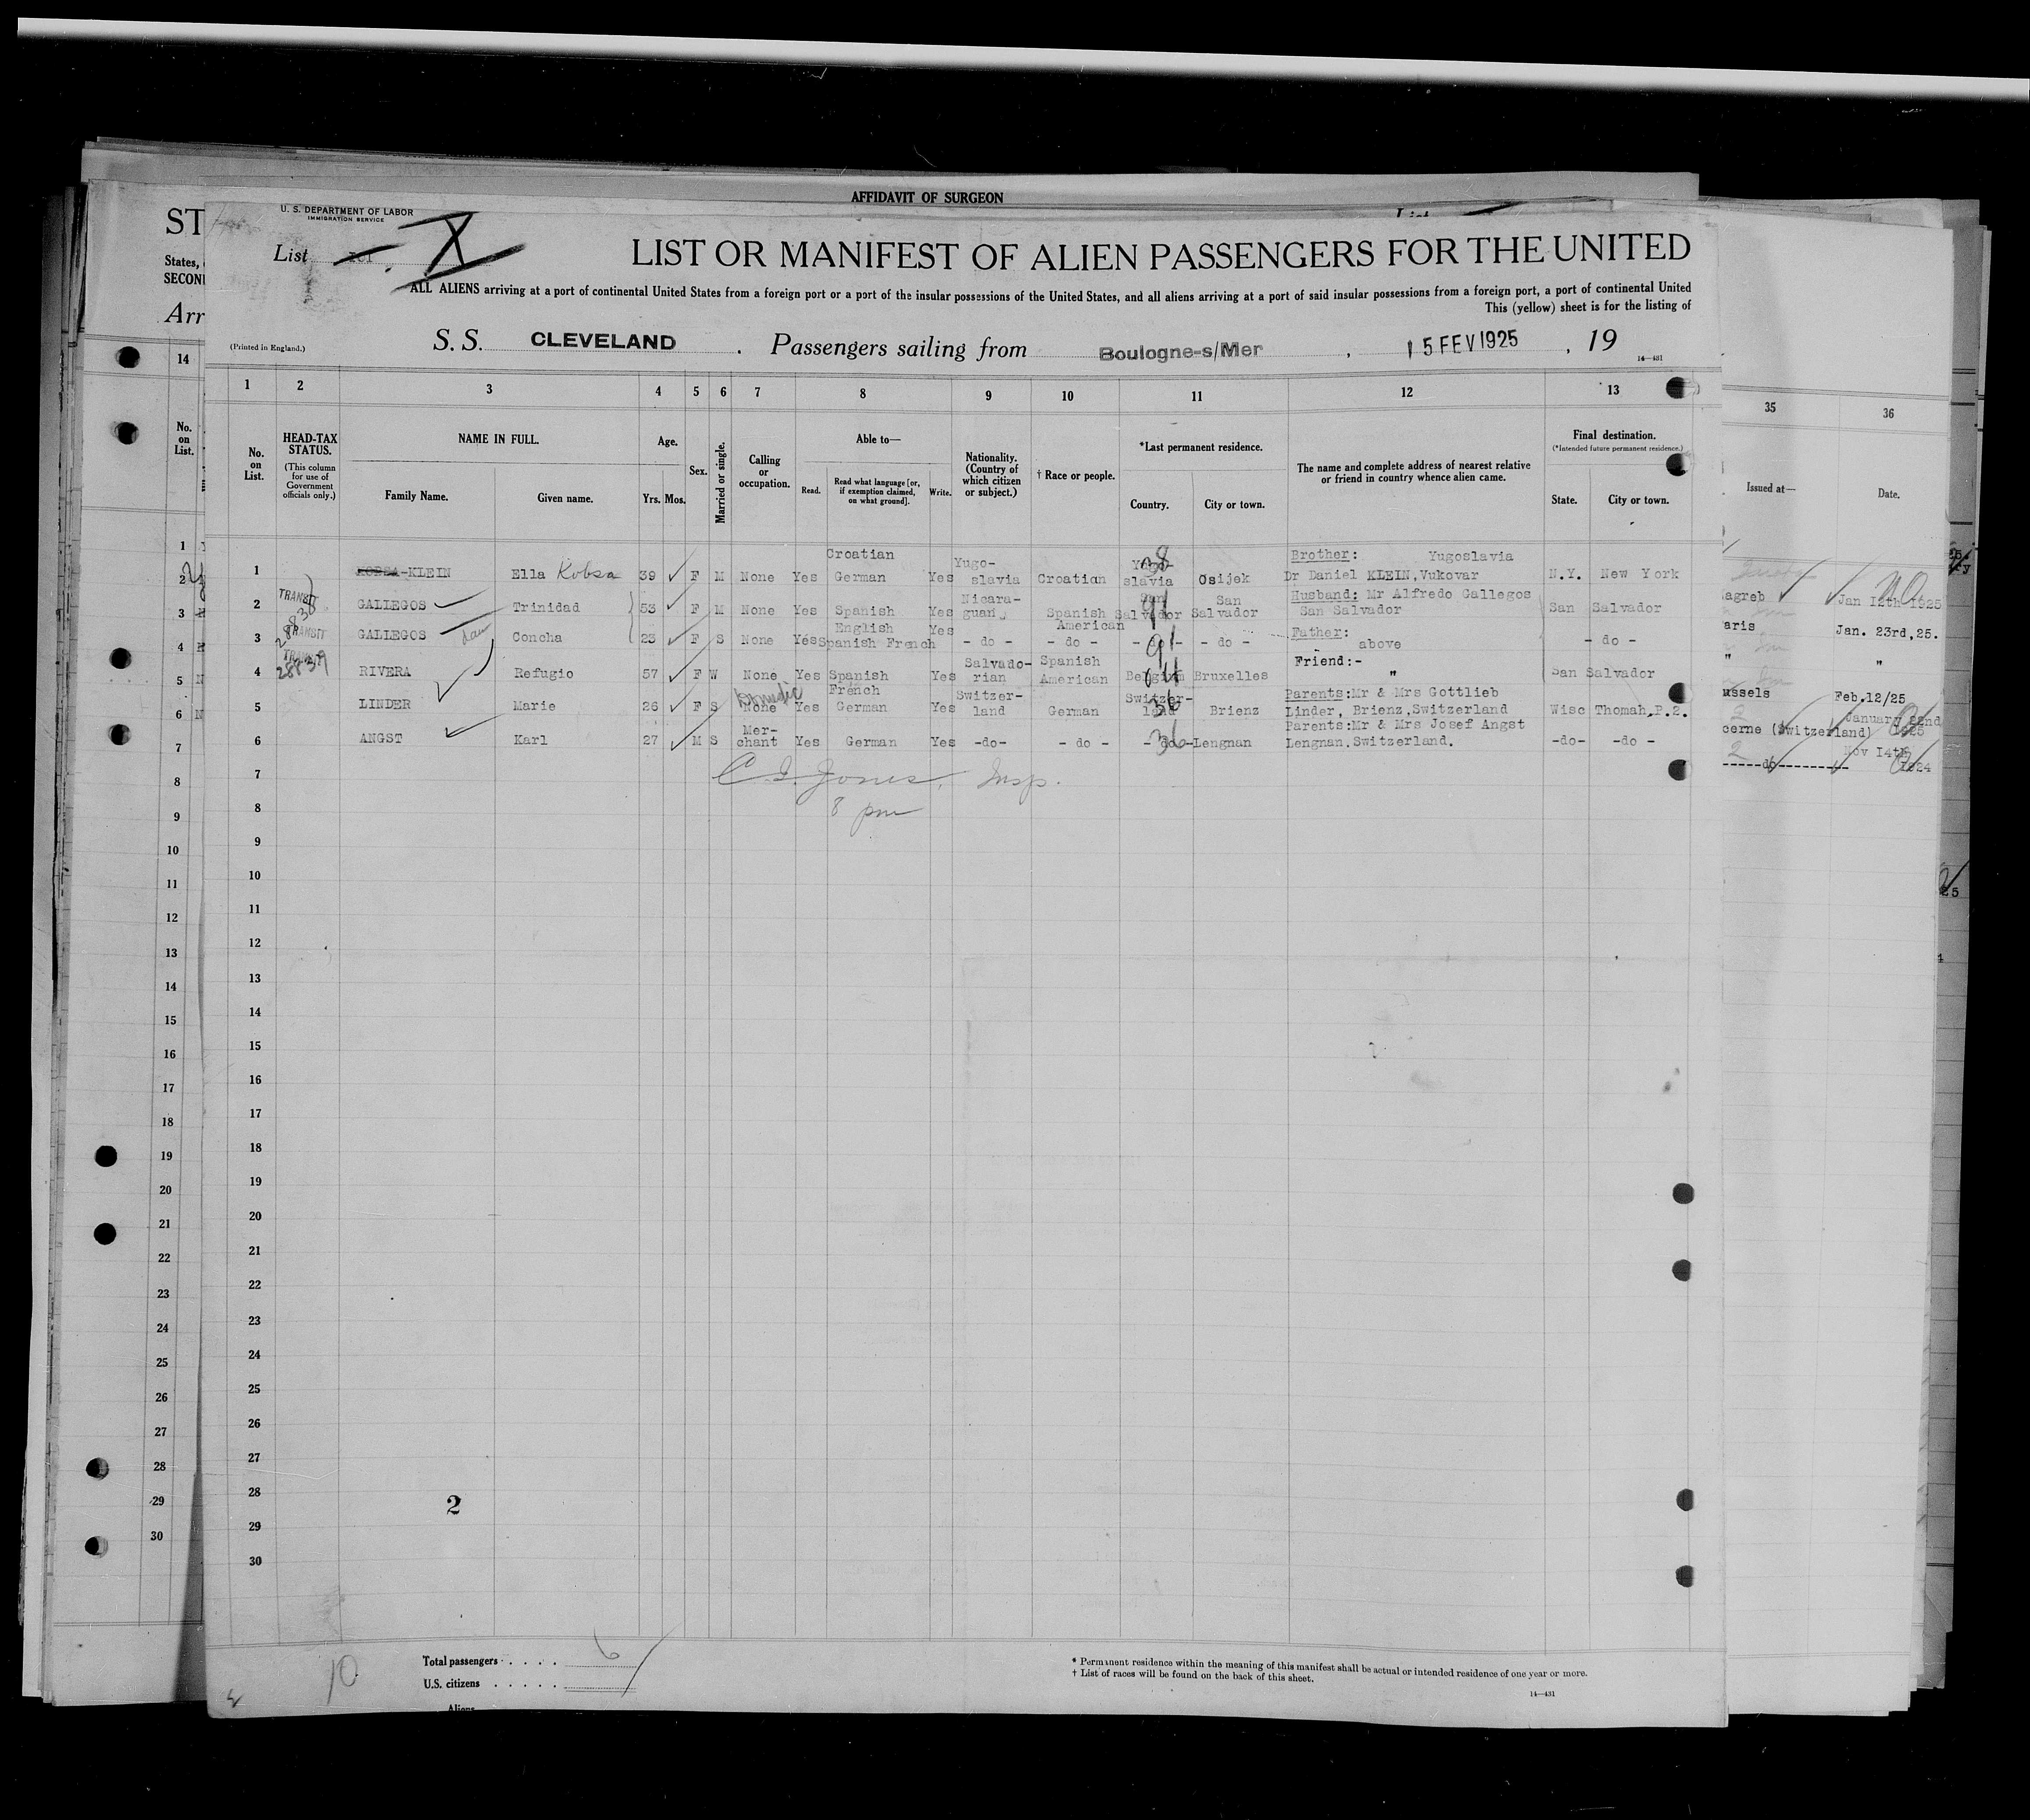 AFFIDAVIT OF SURGEON
U. S. DEPARTMENT OF LABOR
IMMIGRATION SERVICE
List X
LIST OR MANIFEST OF ALIEN PASSENGERS FOR THE UNITED
ALL ALIENS arriving at a port of continental United States from a foreign port or a port of the insular possessions of the United States, and all aliens arriving at a port of said insular possessions from a foreign port, a port of continental United
This (yellow) sheet is for the listing of
(Printed in England.)
S. S. CLEVELAND. Passengers sailing from Boulogne-s/Mer, 15 FEV 1925, 19
14—431
1 2 3 4 5 6 7 8 9 10 11 12 13
35 36
No. on List.
HEAD-TAX STATUS.
(This column for use of Government officials only.)
NAME IN FULL.
Family Name. Given name.
Age.
Yrs. Mos.
Sex.
Married or single.
Calling or occupation.
Able to—
Read. Read what language [or, if exemption claimed, on what ground]. Write.
Nationality. (Country of which citizen or subject.)
† Race or people.
*Last permanent residence.
Country. City or town.
The name and complete address of nearest relative or friend in country whence alien came.
Final destination.
(*Intended future permanent residence.)
State. City or town.
Issued at— Date.
1 KOBSA-KLEIN Ella Kobsa 39 F M None Yes Croatian German Yes Yugo-slavia Croatian Yugo-slavia Osijek Brother: Yugoslavia Dr Daniel KLEIN,Vukovar N.Y. New York agreb Jan 12th 1925
2 TRANSIT GALLEGOS Trinidad 53 F M None Yes Spanish Yes Nicara-guan Spanish American San Salvador San Salvador Husband: Mr Alfredo Gallegos San Salvador San Salvador aris Jan. 23rd,25.
3 TRANSIT 28838 GALLEGOS dau Concha 23 F S None Yes English Spanish French Yes - do - - do - - do - - do - Father: above - do - " "
4 TRANSIT 28839 RIVERA Refugio 57 F W None Yes Spanish French Yes Salvado-rian Spanish American Belgium Bruxelles Friend:- " San Salvador ussels Feb,12/25
5 LINDER Marie 26 F S Domestic None Yes German Yes Switzer-land German Switzer-land Brienz Parents:Mr & Mrs Gottlieb Linder, Brienz,Switzerland Wisc Thomah,P.2. cerne (Switzerland) January 22nd 1925
6 ANGST Karl 27 M S Mer-chant Yes German Yes -do- - do - - do - Lengnan Parents:Mr & Mrs Josef Angst Lengnan.Switzerland. -do- -do - -----do--------- Nov 14th 1924
7 C. I. Jones, Insp.
8 8 pm
9
10
11
12
13
14
15
16
17
18
19
20
21
22
23
24
25
26
27
28 2
29
30
Total passengers . . . . 6
U.S. citizens . . . . .
Aliens
10
* Permanent residence within the meaning of this manifest shall be actual or intended residence of one year or more.
† List of races will be found on the back of this sheet.
14—431